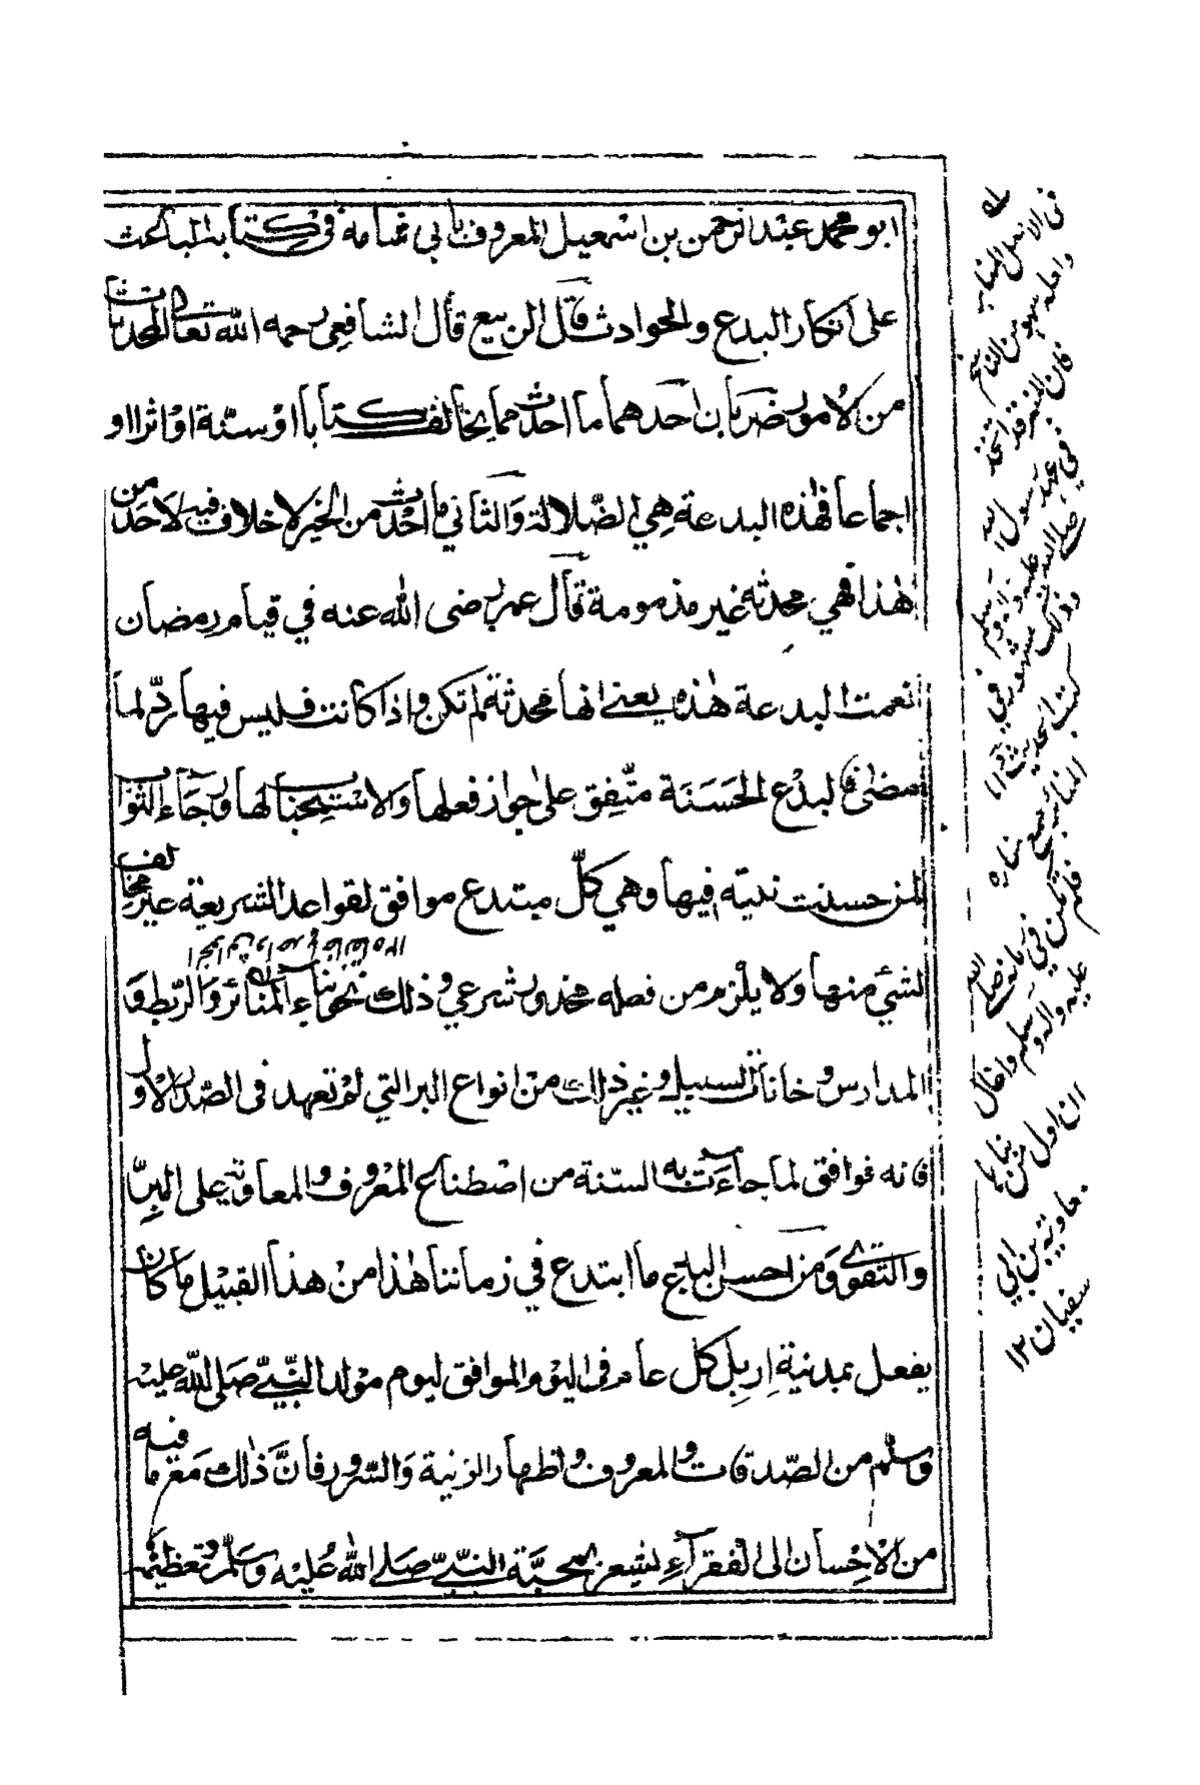 ابو محمد عبد الرحمن بن اسمعيل المعروف بابي شامة في كتابه الباعث
على انكار البدع والحوادث قال الربيع قال الشافعي رحمه الله تعالى المحدثات
من الامور ضربان احدهما ما احدث مما يخالف كتابا او سنة او اثرا او
اجماعا فهذه البدعة هي الضلالة والثاني ما احدث من الخير لا خلاف فيه لاحد من
هذا فهي محدثة غير مذمومة قال عمر رضى الله عنه في قيام رمضان
نعمت البدعة هذه يعني انها محدثة لم تكن واذا كانت فليس فيها رد لما
مضى فالبدع الحسنة متفق على جواز فعلها والاستحباب لها ورجاء الثواب
لمن حسنت نيته فيها وهي كل مبتدع موافق لقواعد الشريعة غير مخالف
لشيء منها ولا يلزم من فعله محذور شرعي وذلك نحو بناء المنائر والربط و
المدارس وخانات السبيل وغير ذلك من انواع البر التي لم تعهد في الصدر الاول
فانه موافق لما جاءت به السنة من اصطناع المعروف والمعاونة على البر
والتقوى ومن احسن البدع ما ابتدع في زماننا هذا من هذا القبيل ما كان
يفعل بمدينة اربل كل عام في اليوم الموافق ليوم مولد النبي صلى الله عليه
وسلم من الصدقات والمعروف واظهار الزينة والسرور فان ذلك مع ما فيه
من الاحسان الى الفقراء يشعر بمحبة النبي صلى الله عليه وسلم وتعظيمه
في الاصل المنابر
ولعله سهو من الناسخ
فان المنبر قد اتخذ
في عهد رسول الله
صلى الله عليه وآله وسلم
وذلك مشهور في
كتب الحديث واما
المنابر
فلم تكن في زمانه صلى الله
عليه وآله وسلم ويقال
ان اول من بناها
معاوية بن ابي
سفيان ١٢